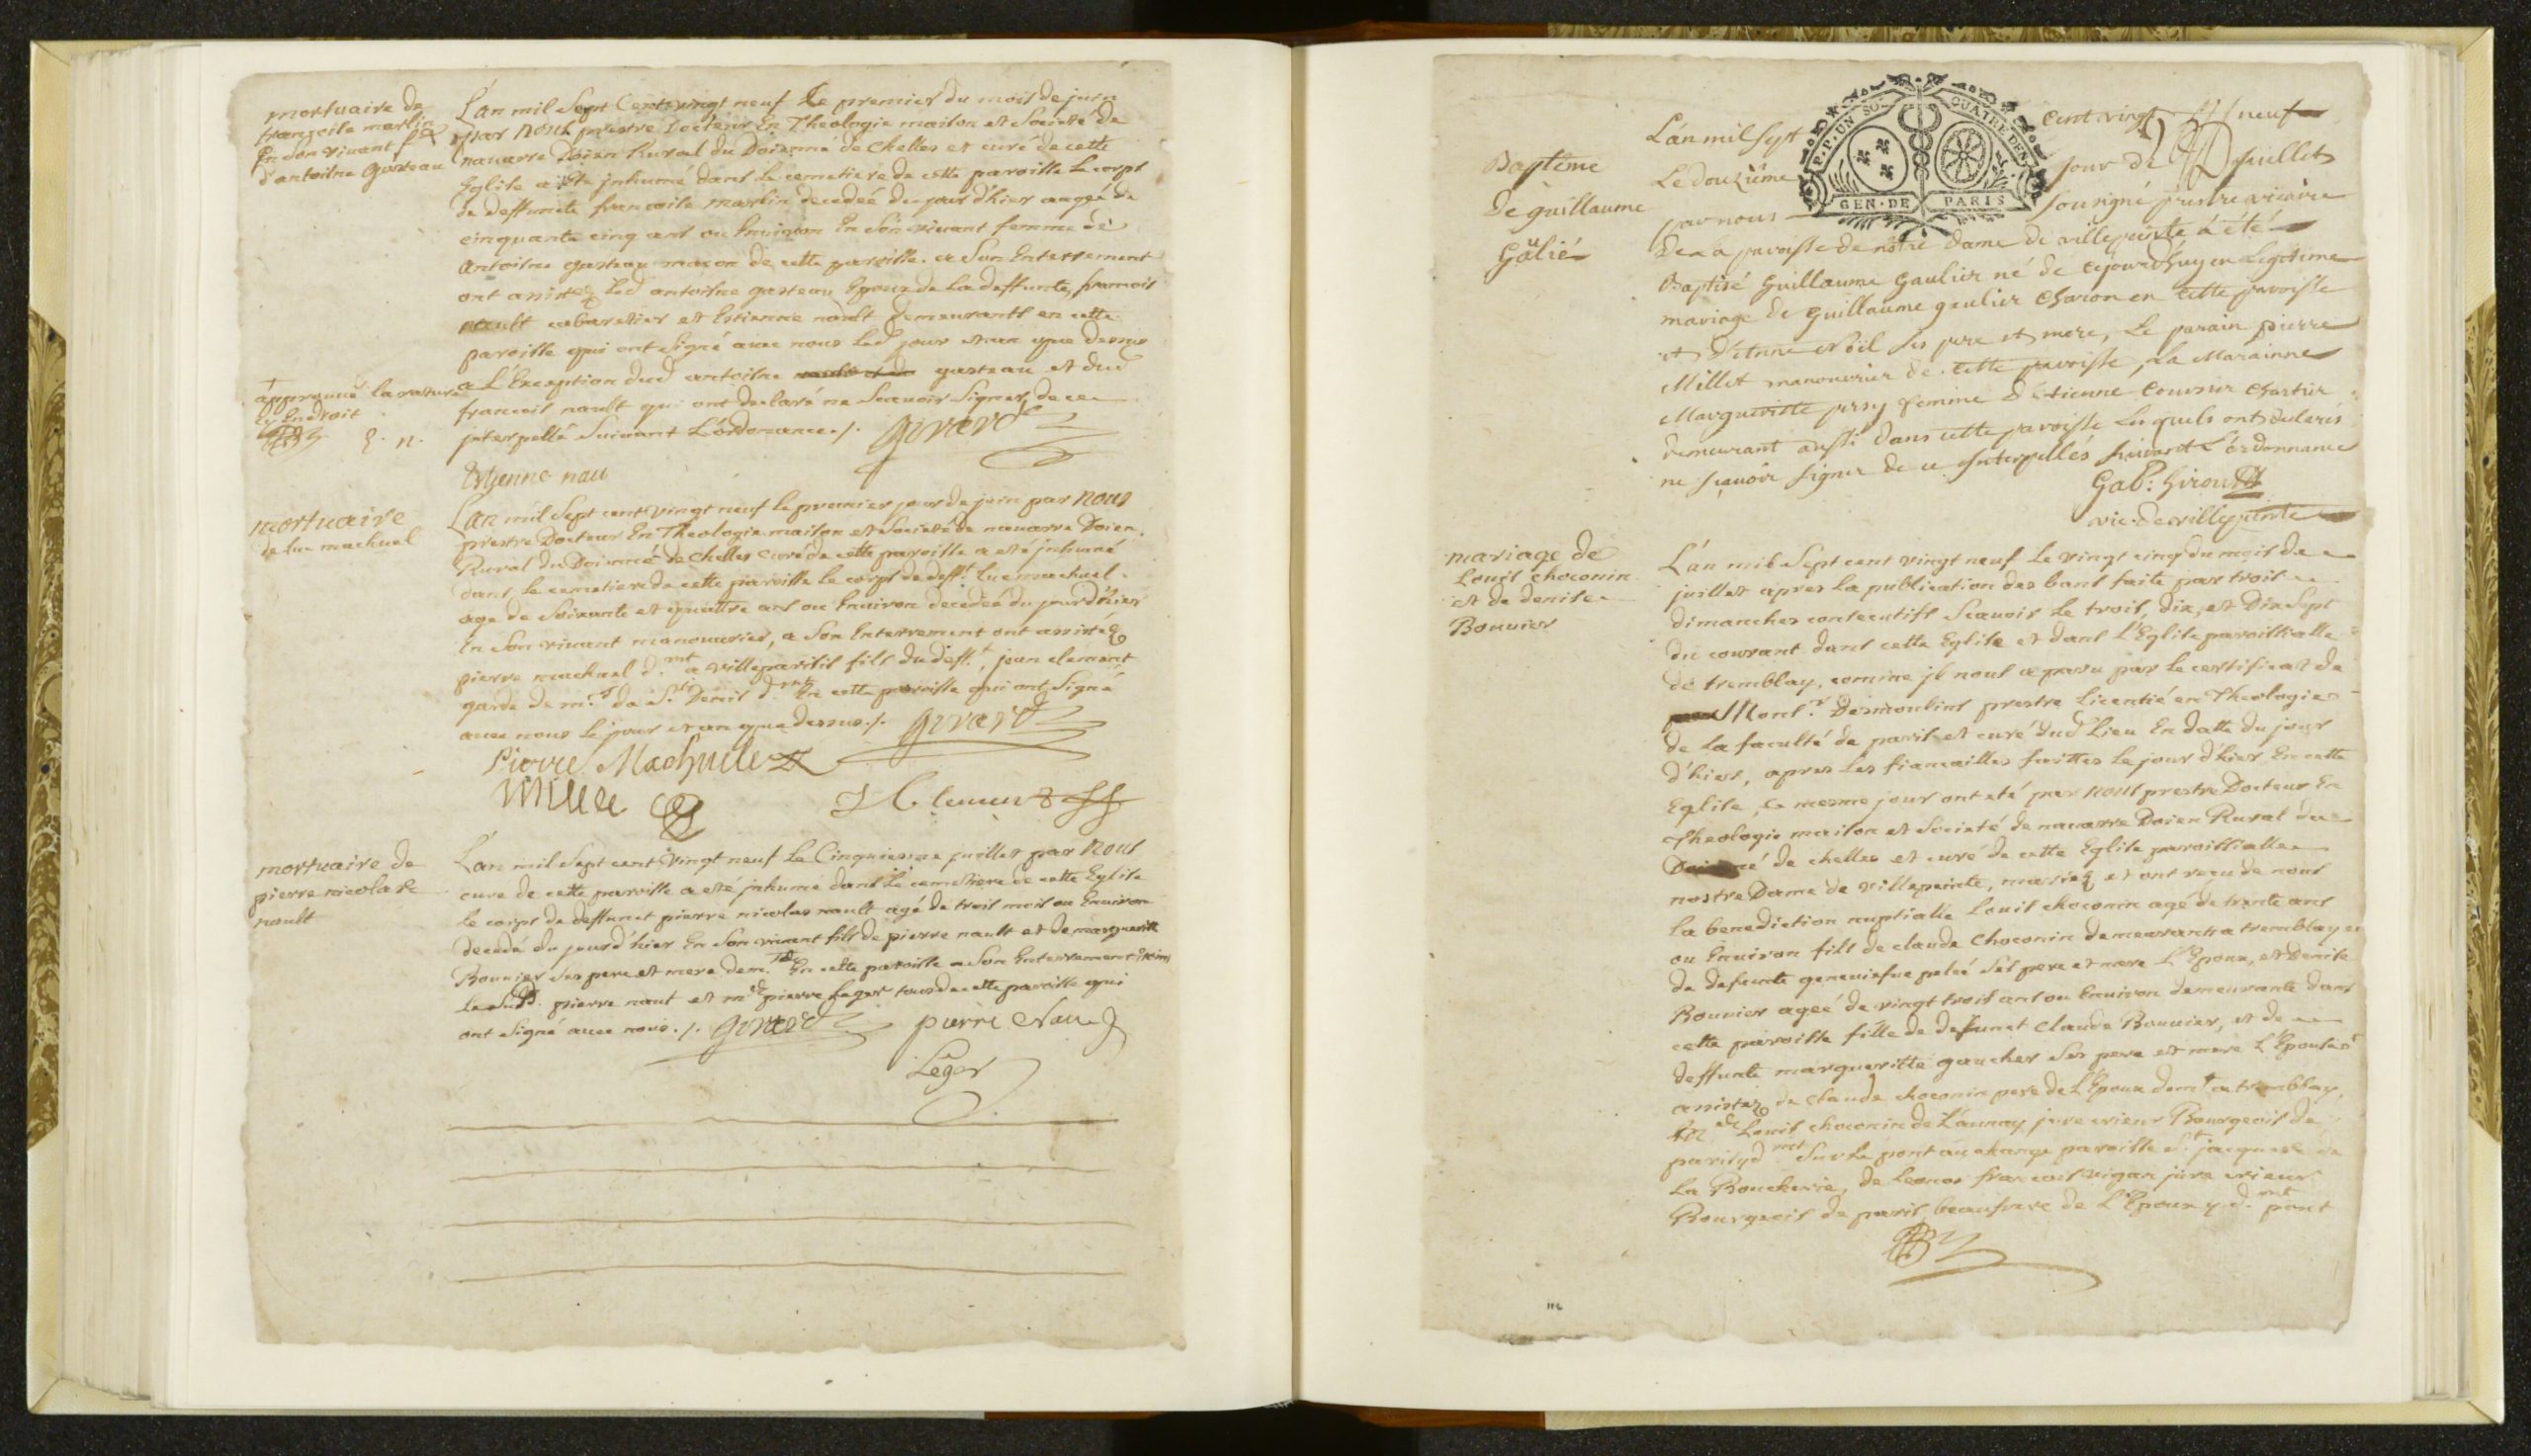 mortuaire de
francoise martin
En son vivant fe
d'antoine gasteau
L'an mil Sept Cent vingt neuf Le premier du mois de juin
par Nous prestre Docteur En Theologie maison et Societé de
navarre Doien Rural du Doienné de Chelles et curé de cette
Eglise a esté jnhumé dans Le cemetiere de cette paroisse Le corps
de deffuncte francoise martin decedée du jour d'hier aagée de
cinquante cinq ans ou Environ En son vivant femme de
antoine gasteau macon de cette paroisse. a Son Enterrement
ont assisté Led antoine gasteau Epoux de La deffunte, francois
nault cabaretier et Estienne nault demeurants en cette
paroisse qui ont signé avec nous Led jour et an que dessus
a L'Exception dud antoine gasteau et dud
francois nault qui ont declaré ne Scavoir Signer de ce
jnterpellé Suivant L'ordonance ./. Girard
approuvé la rature
cy Endroit
E. n.
Estienne nau
mortuaire
de luc machuel
L'an mil Sept cent vingt neuf le premier jour de juin par Nous
prestre Docteur En Theologie maison et Societé de navarre Doien
Rural du Doienné de Chelles curé de cette paroisse a esté jnhumé
dans Le cemetiere de cette paroisse le corps de defft luc machuel
age de Soixante et quattre ans ou Environ decedéé du jour d'hier
En Son vivant manouvrier, a Son Enterrement ont assisté
pierre machuel d.nt a villeparisis fils du deff.t, jean clement
garde de m.rs de S.t Denis d.nt En cette paroisse qui ont Signé
avec nous Le jour et an que dessus ./. Girard
Pierre Machuelle
Mille
J Clement
mortuaire de
pierre nicolas
nault
L'an mil Sept cent Vingt neuf Le Cinquiesme juillet par Nous
curé de cette paroisse a esté jnhumé dans Le cemetiere de cette Eglise
le corps de deffunct pierre nicolas nault agé de trois mois ou Environ
decedé du jour d'hier En Son vivant fils de pierre nault et de margueritte
Bouvier Ses pere et mere dem.rts En cette paroisse a Son Enterrement
Le Susd. pierre naut et m.e pierre Leger tous de cette paroisse qui
ont Signé avec nous ./. Girard pierre Nau
Léger
P.P. UN SOL QUATRE DEN.
GEN. DE PARIS
Baptême
De guillaume
Gaulié
L'an mil Sept cent vingt neuf
Le Douziéme jour de juillet
par nous Sousigné prestre vicaire
De La paroisse de nôtre dame de villepeinte à été
Baptisé Guillaume Gaulier né de cejourdhuy en Legitime
mariage de Guillaume gaulier Charon en cette paroisse
et d'Anne Noël ses pere et mere, Le parain Pierre
Millet manouvrier de cette paroisse, La Marainne
Margueritte persy femme d'Etienne Couvreur Chartier
demeurant aussi dans cette paroisse Lesquels ont declarés
ne sçavoir signer de ce Interpellés suivant L'ordonnance
Gab: Giroust
vic. de villepinte
mariage de
Louis choconin
et de denise
Bouvier
L'an mil Sept cent vingt neuf Le vingt cinq du mois de
juillet apres La publication des bans faite par trois
dimanches consecutifs Scavoir Le trois, dix, et Dix Sept
du courant dans cette Eglise et dans L'Eglise paroissialle
de tremblay, comme jl nous a paru par Le certificat de
Mons.r Desmoulins prestre Licentié en Theologie
de La faculté de paris et curé dud Lieu En datte du jour
d'hier, apres Les fiancailles faittes Le jour d'hier En cette
Eglise, Ce mesme jour ont eté par Nous prestre Docteur En
Theologie maison et Societé de navarre Doien Rural du
Doienné de chelles et curé de cette Eglise paroissialle
nostre Dame de Villepeinte, mariez et ont reçu de nous
La benediction nuptialle Louis choconin agé de trente ans
ou Environ fils de claude Choconin demeurant a tremblay et
de defuncte genevieſue peleé Ses pere et mere L'Epoux, et Denise
Bouvier ageé de vingt trois ans ou Environ demeurante dans
cette paroisse fille de defunct Claude Bouvier, et de
deffuncte margueritte gaucher Ses pere et mere L'Epouse
assistez de claude choconin pere de L'Epoux dem.t a tremblay,
Louis choconin de L'aunay jure crieur Bourgeois de
paris y d.nt Sur Le pont au change paroisse S.t jacques de
La Boucherie, de Leonor francois vigan jure crieur
Bourgeois de paris beaufrere de L'Epoux y d.nt pont